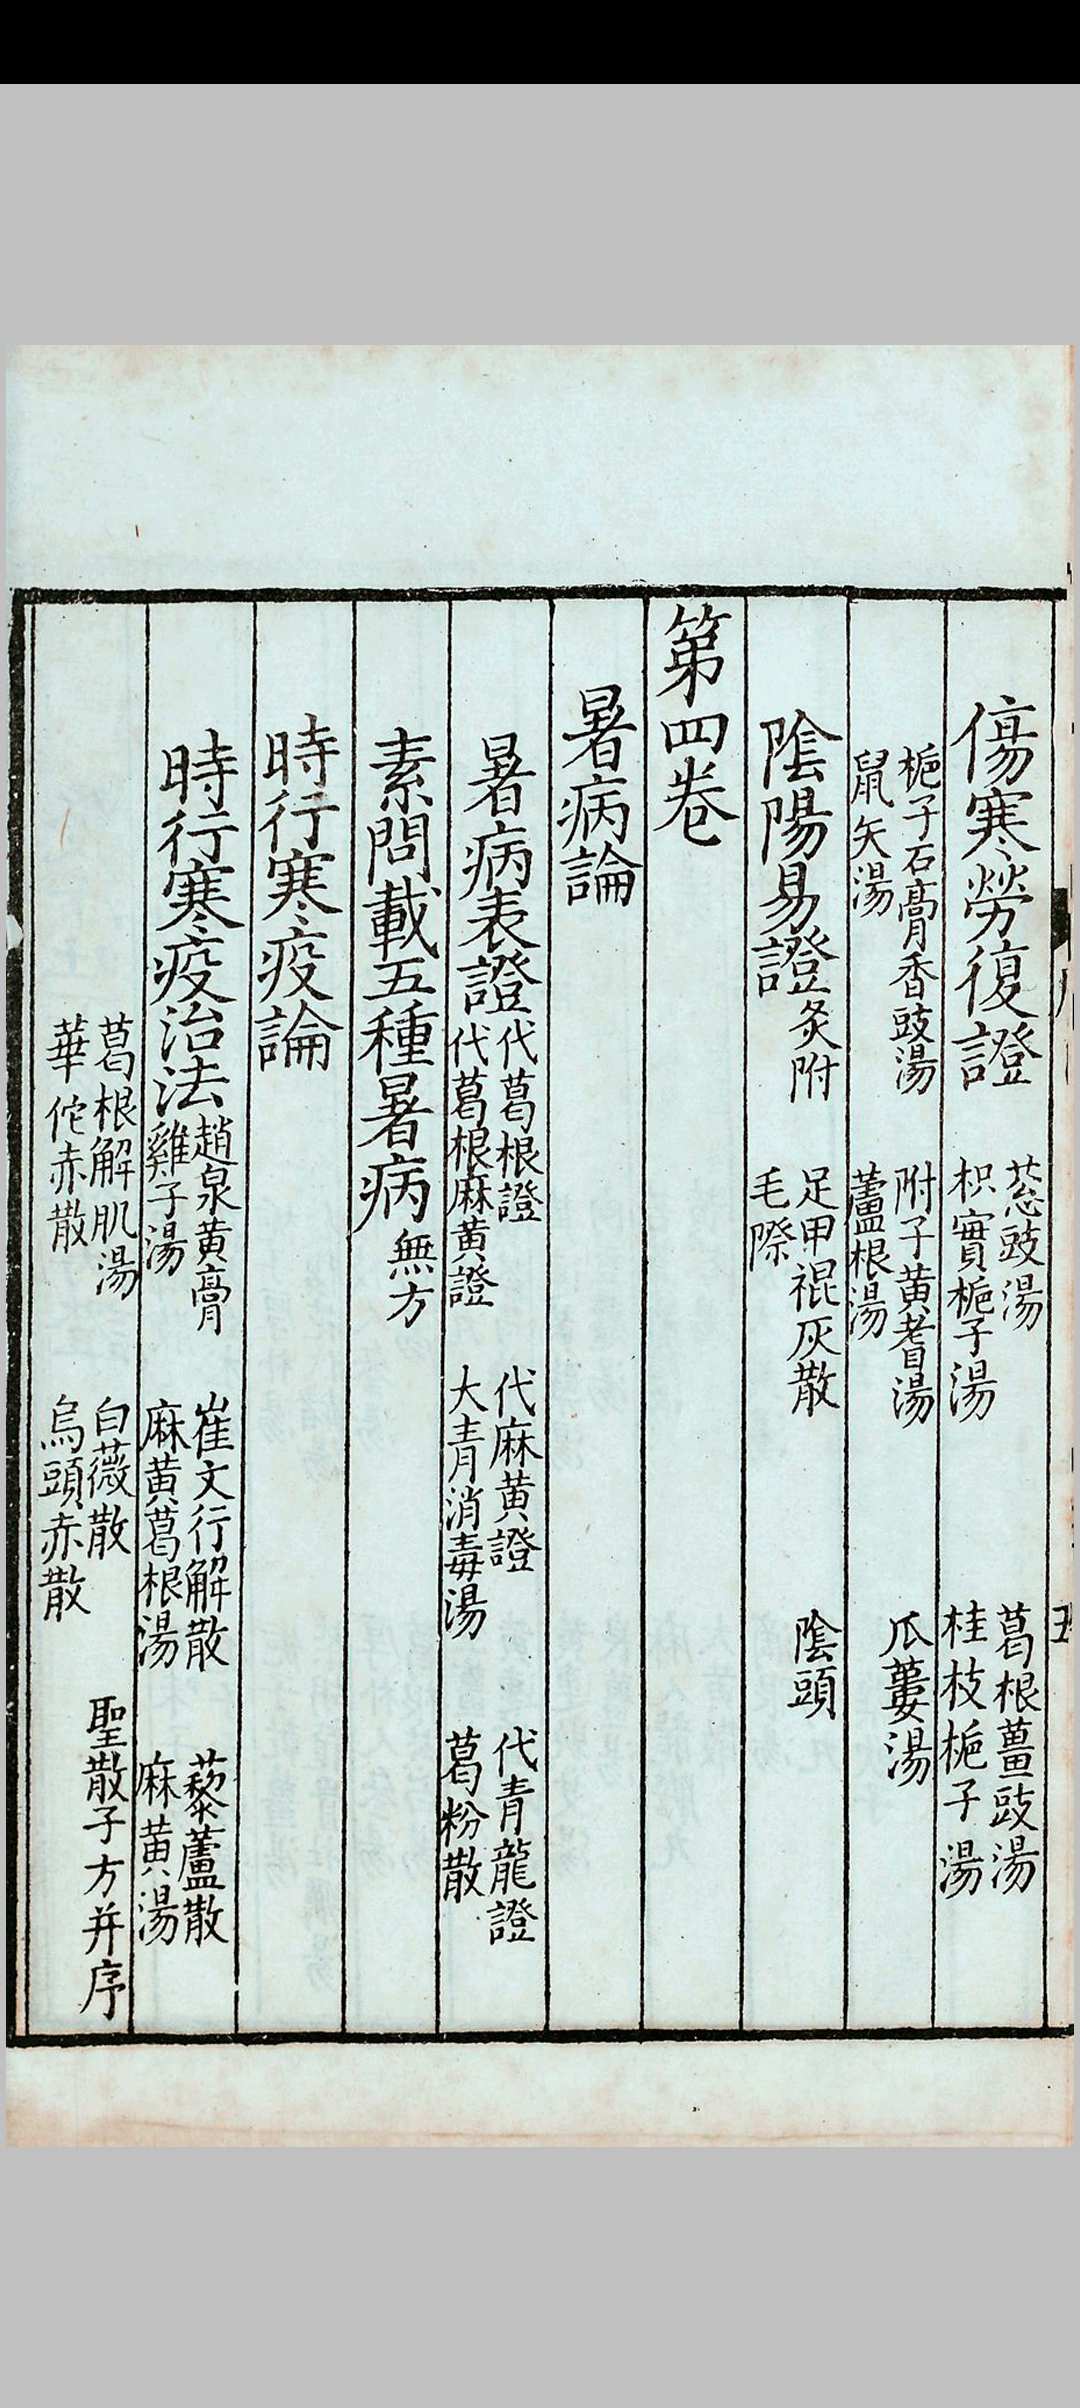 傷寒勞復證
葱豉湯 葛根薑豉湯
枳實梔子湯 桂枝梔子湯
梔子石膏香豉湯 附子黃耆湯 瓜蔞湯
鼠矢湯 蘆根湯
陰陽易證灸附 足甲褌灰散 陰頭
毛際
第四卷
暑病論
暑病表證
代葛根證 代麻黃證 代青龍證
代葛根麻黃證 大青消毒湯 葛粉散
素問載五種暑病無方
時行寒疫論
時行寒疫治法
趙泉黃膏 崔文行解散 藜蘆散
雞子湯 麻黃葛根湯 麻黃湯
葛根解肌湯 白薇散 聖散子方并序
華佗赤散 烏頭赤散
五